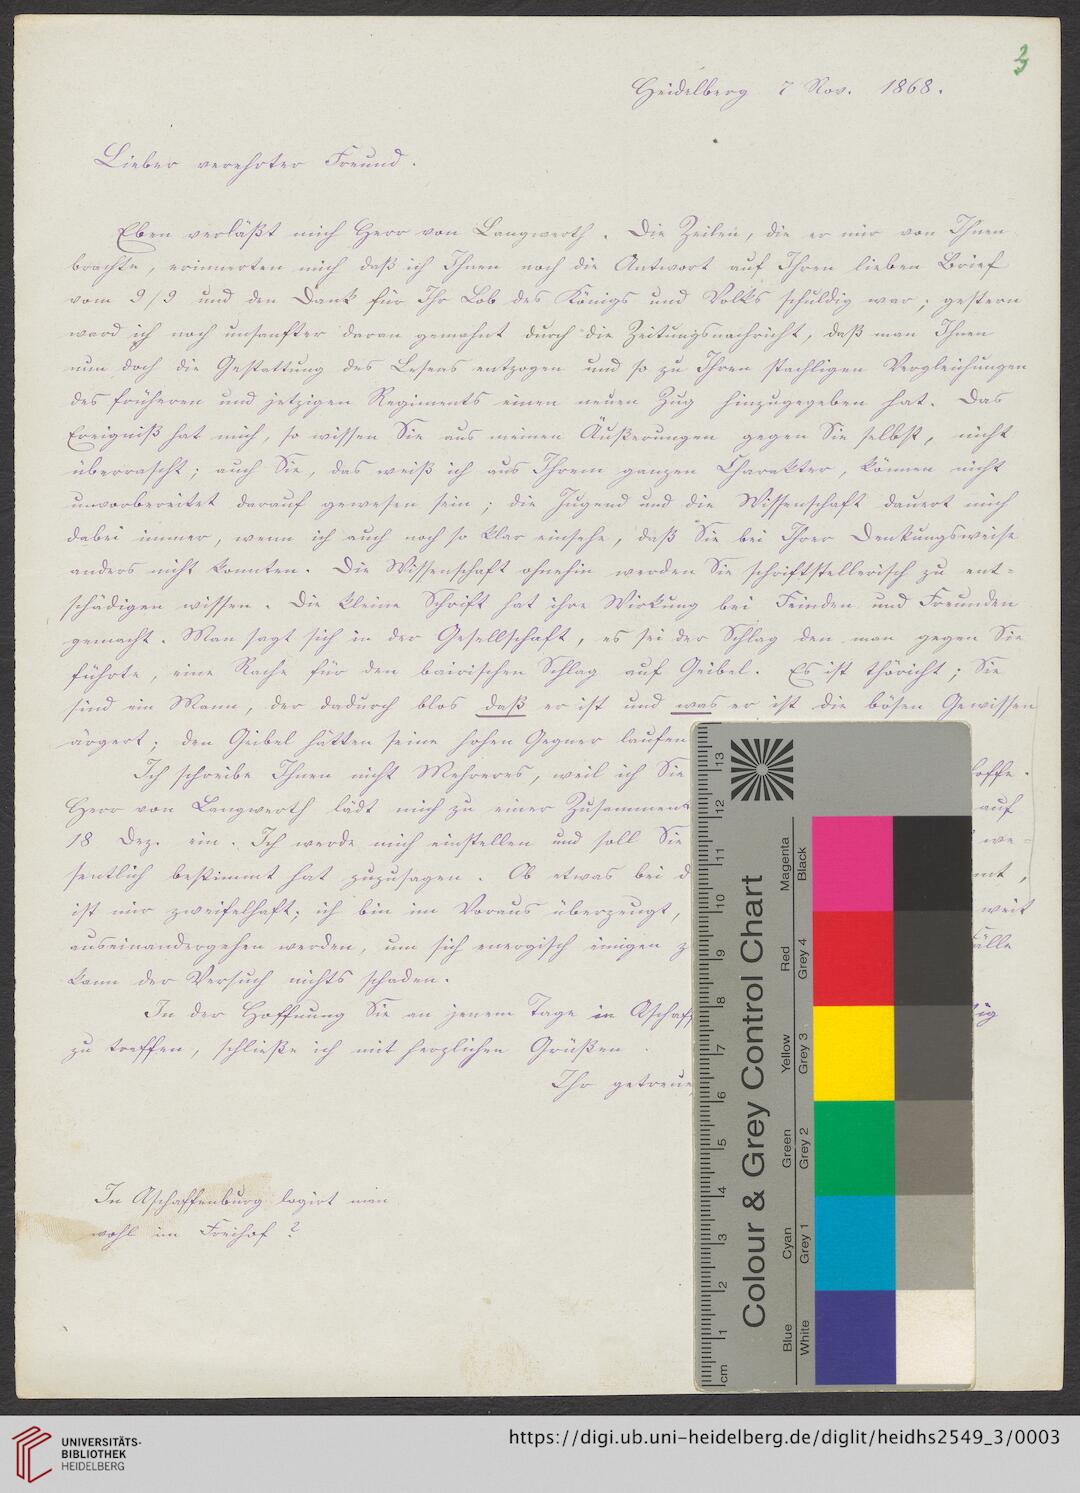 3
Heidelberg 7 Nov. 1868.
Lieber verehrter Freund.
Eben verläßt mich Herr von Langwerth. Die Zeilen, die er mir von Ihnen
brachte, erinnerten mich daß ich Ihnen noch die Antwort auf Ihren lieben Brief
vom 9/9 und den Dank für Ihr Lob des Königs und Volks schuldig war; gestern
ward ich noch unsanfter daran gemahnt durch die Zeitungsnachricht, daß man Ihnen
nun doch die Gestattung des Lesens entzogen und so zu Ihren stachligen Vergleichungen
des früheren und jetzigen Regiments einen neuen Zug hinzugegeben hat. Das
Ereigniß hat mich, so wissen Sie aus meinen Äußerungen gegen Sie selbst, nicht
überrascht; auch Sie, das weiß ich aus Ihrem ganzen Charakter, können nicht
unvorbereitet darauf gewesen sein; die Jugend und die Wissenschaft dauert mich
dabei immer, wenn ich auch noch so klar einsehe, daß Sie bei Ihrer Denkungsweise
anders nicht konnten. Die Wissenschaft ohnehin werden Sie schriftstellerisch zu ent-
schädigen wissen. Die kleine Schrift hat ihre Wirkung bei Feinden und Freunden
gemacht. Man sagt sich in der Gesellschaft, es sei der Schlag den man gegen Sie
führte, eine Rache für den bairischen Schlag auf Geibel. Es ist thöricht; Sie
sind ein Mann, der dadurch blos daß er ist und was er ist die bösen Gewissen
ärgert; den Geibel hätten seine hohen Gegner laufen
Ich schreibe Ihnen nicht Mehreres, weil ich Sie hoffe.
Herr von Langwerth lädt mich zu einer Zusammen auf
18 Dez. ein. Ich werde mich einstellen und soll Sie we-
sentlich bestimmt hat zuzusagen. Ob etwas bei d mt,
ist mir zweifelhaft; ich bin im Voraus überzeugt, weit
auseinandergehen werden, um sich energisch einigen z älle
kann der Versuch nichts schaden.
In der Hoffnung Sie an jenem Tage in Aschaff ig
zu treffen, schließe ich mit herzlichen Grüßen.
Ihr getreue
In Aschaffenburg logirt man
wohl im Freihof?
Colour & Grey Control Chart
Blue Cyan Green Yellow Red Magenta
White Grey 1 Grey 2 Grey 3 Grey 4 Black
cm 1 2 3 4 5 6 7 8 9 10 11 12 13
UNIVERSITÄTS-
BIBLIOTHEK
HEIDELBERG
https://digi.ub.uni-heidelberg.de/diglit/heidhs2549_3/0003